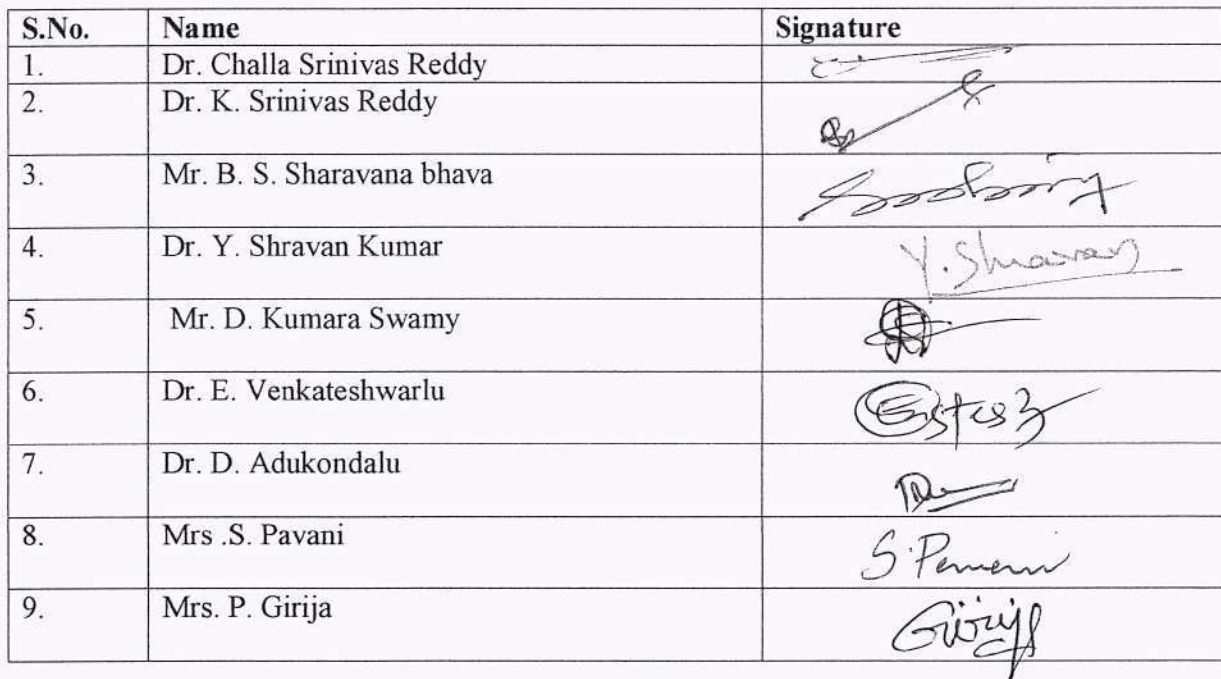 S.No. Name Signature
1. Dr. Challa Srinivas Reddy
2. Dr. K. Srinivas Reddy
3. Mr. B. S. Sharavana bhava
4. Dr. Y. Shravan Kumar Y. Shravan
5. Mr. D. Kumara Swamy
6. Dr. E. Venkateshwarlu
7. Dr. D. Adukondalu
8. Mrs .S. Pavani
9. Mrs. P. Girija Girija